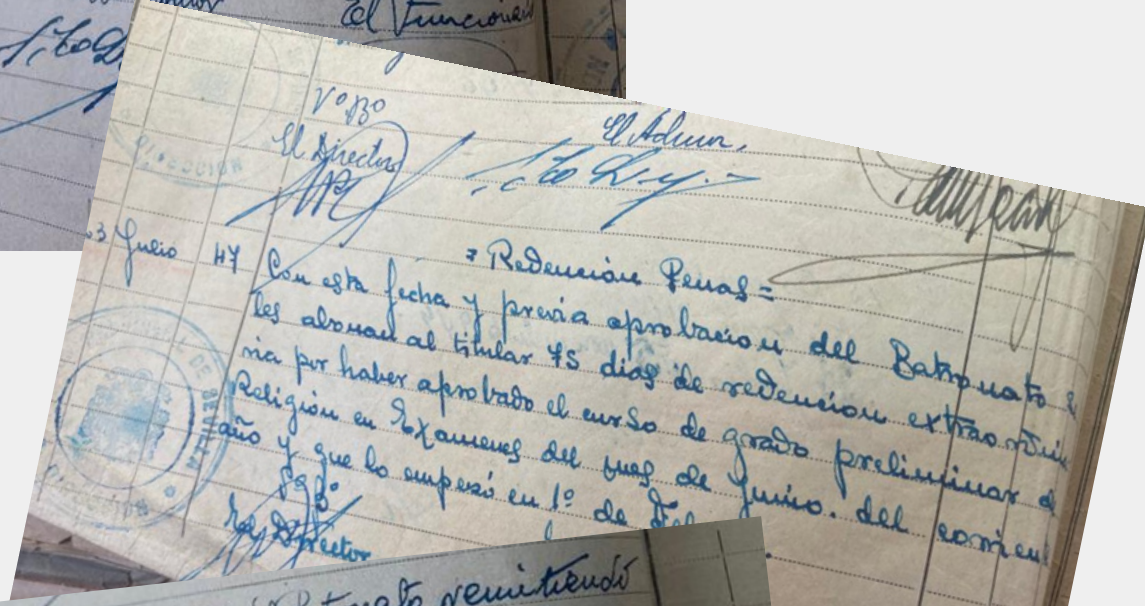 El Funcionari
Vº Bº
El Director
El Admor.
3 Julio 47
= Redención Penas =
Con esta fecha y previa aprobacion del Batronato s
les abonan al titular 75 dias de redencion extraordin
ria por haber aprobado el curso de grado preliminar d
Religión en Examenes del mes de Junio. del corrient
año y que lo empezó en 1º de
Vº Bº
El Director
remitiendo
DE SEVILLA